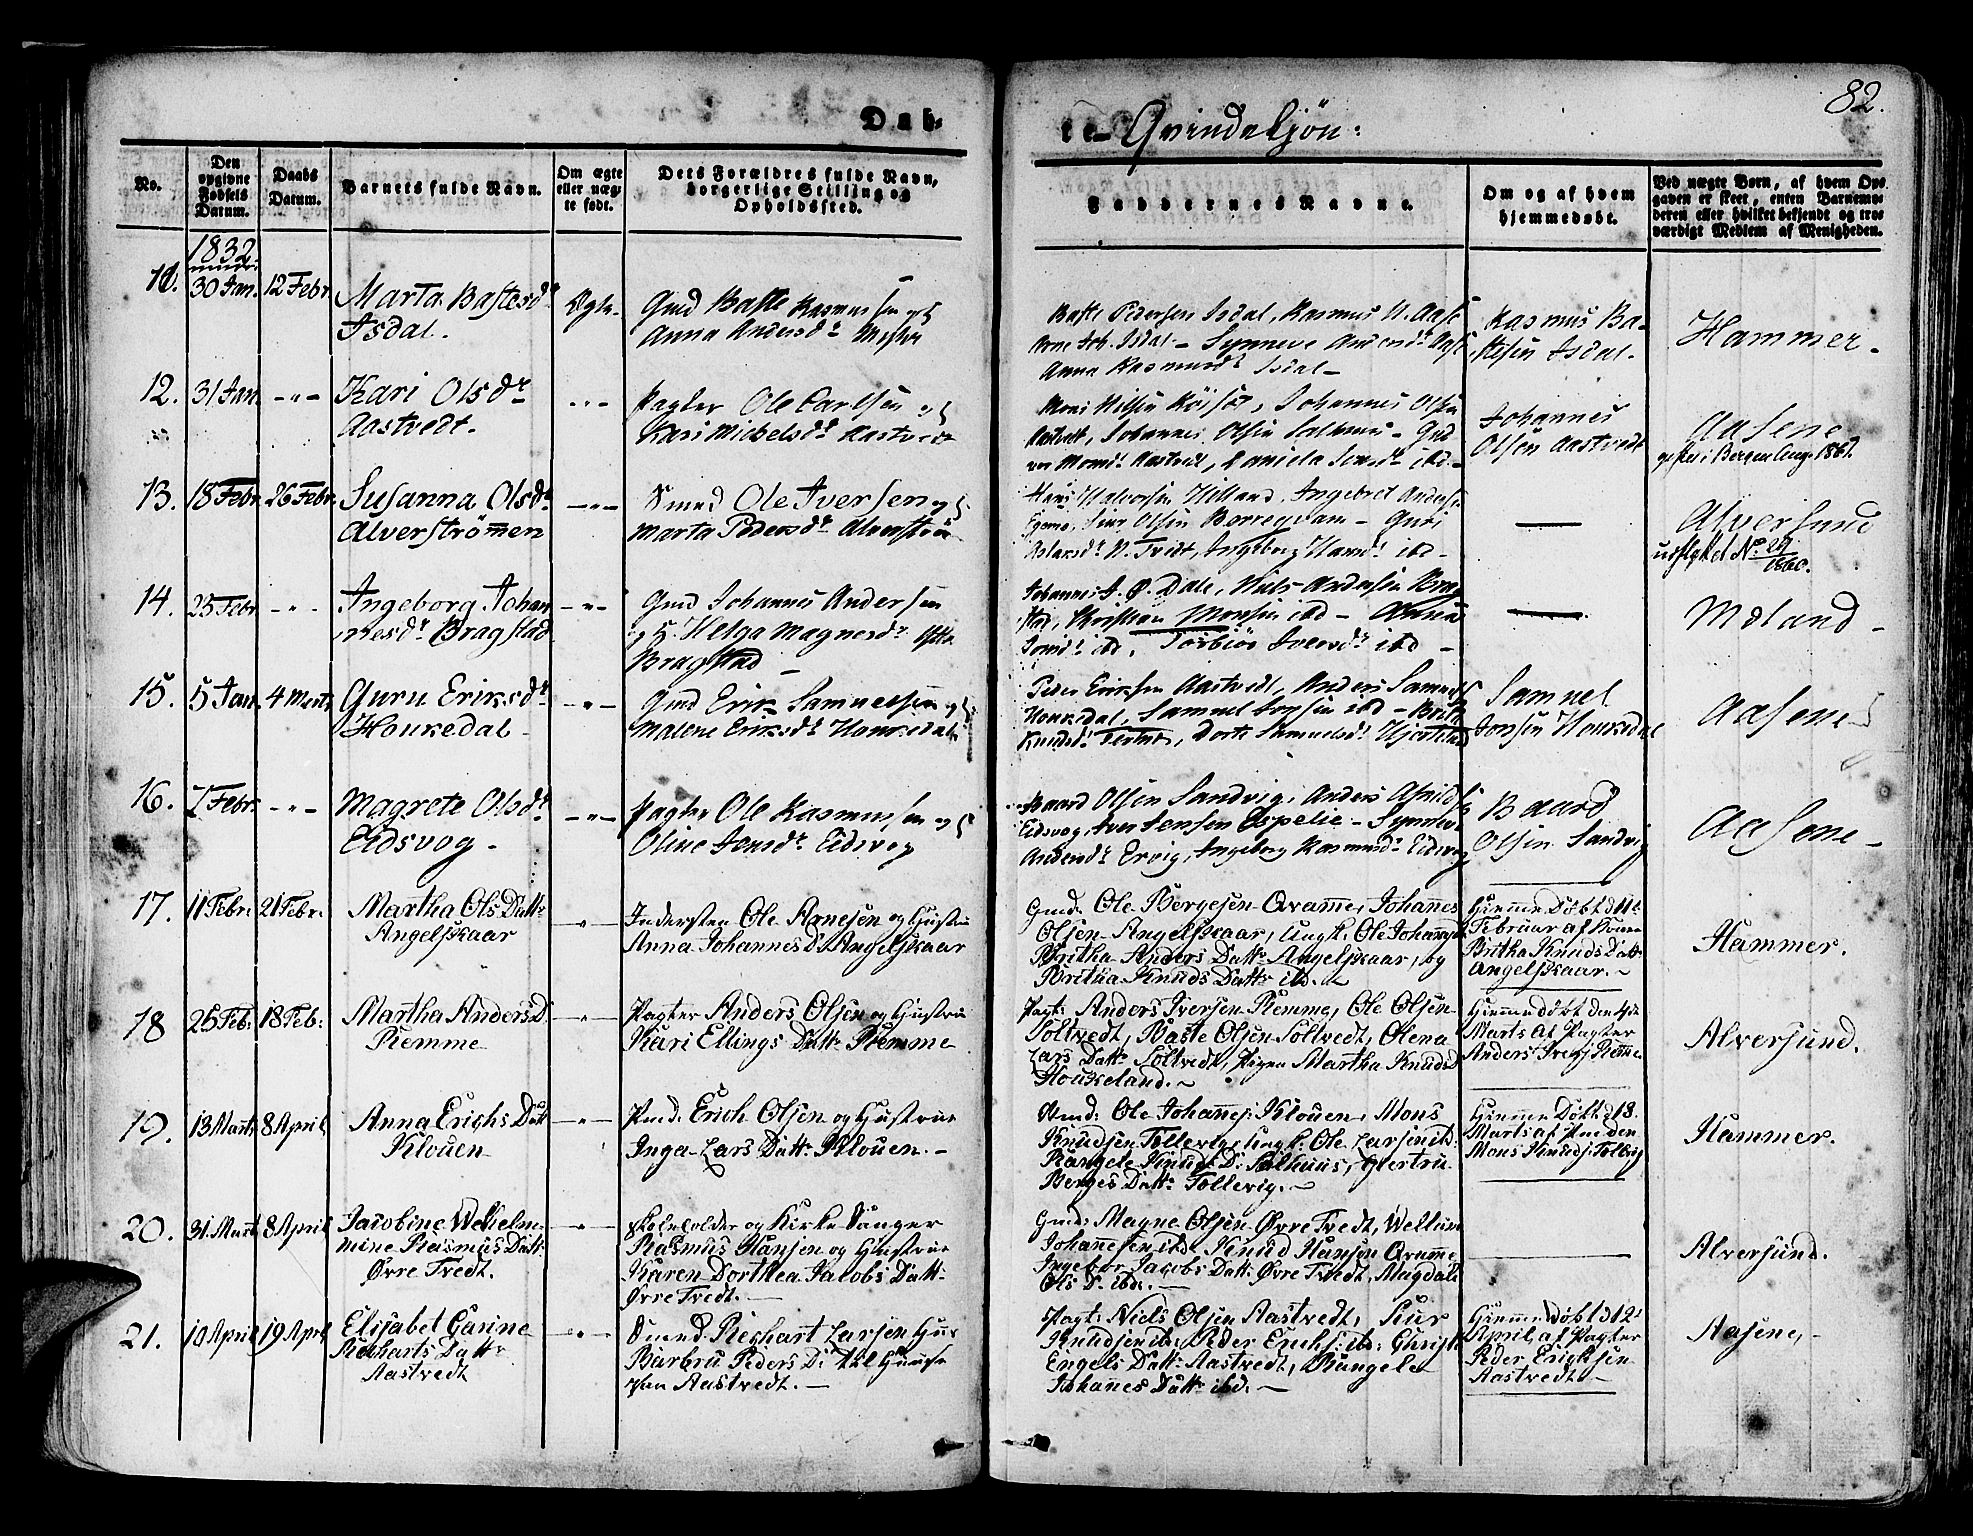 82.
Døb-
te Qvindekjön:
No.
Den
opgivne
Fødsels
Datum.
Daabs
Datum.
Barnets fulde Navn.
Om ægte
eller uæg-
te født.
Dets Forældres fulde Navn,
borgerlige Stilling og
Opholdssted.
Faddernes Navne.
Om og af hvem
hjemmedøbt.
Ved uægte Børn, af hvem Op-
gaven er skeet, enten Barnemo-
deren eller hvilket bekjendt og tro-
værdigt Medlem af Menigheden.
1832
11. 30 Jan. 12 Febr
Marta Bastesdr
Isdal.
Ægte.
Gmd Baste Rasmussen og
Anna Andersdr
Baste Pedersen Isdal, Rasmus
Arne Joh. Isdal - Synneve
Anna Rasmusdr Isdal -
Rasmus Ba-
stesen Isdal.
Hammer.
12. 31 Jan. - " -
Kari Olsdr
Aastvedt.
- " -
Pagter Ole Carlsen
Kari Mickelsdr Aastvedt
Mons Nilsen, Johannes Olsen
Aastvedt, Johannes Olsen
Aastvedt, Daniela ibd -
Johannes
Olsen Aastvedt
Aasene
Bergen 1867.
13. 18 Febr. 26 Febr.
Susanna Olsdr
Alverströmmen
- " -
Smed Ole Iversen og
Marta Pedersdr Alverström
Hans Halvorsen Hilland, Ingebret Anders
Olsen Borregvam - Guri
N. Tvedt, Ingeborg ibd -
—
Alversund
udflyttet No 29
1860.
14. 25 Febr. - " -
Ingeborg Johan
nesdr Bragstad
- " -
Gmd Johannes Andersen
og H. Helga Magnesdr
Bragstad -
Johannes Dale, Niels Andersen Brag
stad, Kristian Monsen ibd - Anna
ibd, Torbiör Iversdr ibd -
—
Mæland -
15. 5 Jan. 4 Marts
Guru Eriksdr
Houkedal -
- " -
Gmd Erik Samuelsen og
Malene Eriksdr Houkedal
Peder Eriksen Aastvedt, Anders Samuels
Houkedal, Samuel Jonsen ibd - Brita
Knudsdr, Dorte Samuelsdr Hjortland
Samuel
Jonsen Houkedal
Aasene
16. 7 Febr. - " -
Magrete Olsdr
Eidsvog -
- " -
Pagter Ole Rasmussen og
Oline Jensdr Eidsvog
Baard Olsen Sandvig, Anders
Eidsvog, Iver Jensen Espelie - Synnev
Andersdr Ervig, Ingeborg Rasmusdr Eidsvog
Baard
Olsen Sandvig
Aasene -
17. 11 Febr: 21 Febr:
Martha Ols Dattr
Angelskaar
- " -
Indersten Ole Arnesen og Hustru
Anna Johannes D. Angelskaar
Gmd: Ole Bergesen Qvamme, Johannes
Olsen Angelskaar, Ungk. Ole Johannes
Britha Anders Dattr Angelskaar, og
Britha Knuds Dattr ibd. -
Hiemme Døbt d 11te
Februar af Kone
Britha Knuds Dattr
Angelskaar. -
Hammer.
18 25 Feb: 18 Feb:
Martha Anders D.
Remme
- " -
Pagter Anders Olsen og Hustru
Kari Ellings Dattr Remme
Pagt: Anders Iversen Remme, Ole Olsen
Soltvedt, Baste Olsen Soltvedt, Olena
Lars Dattr Soltvedt, Pigen Martha Knuds D
Houkeland. -
Hiemme døbt den 4de
Marts af Pagter
Anders Ivers: Remme
Alversund.
19. 13 Marts 8 April
Anna Erichs Datt
Klouen
- " -
Pmd: Erich Olsen og Hustrue
Inga Lars Dattr Klouen. -
Smd: Ole Johannes: Klouen, Mons
Knudsen Tollevig, Ungk. Ole Larsen ibd:
Rangele Knuds D: Salhuus, Giertru
Berges Dattr Tollevig. -
Hiemme Døbt d 18.
Marts af Pmden
Mons Knuds: Tollevig
Hammer.
20. 31 Marts 8 April
Jacobine Welhelm
mine Rasmus Dattr
Øvre Tvedt.
- " -
Skoleholder og Kirke Sanger
Rasmus Hansen og Hustrue
Karen Dorthea Jacobs Datt:
Øvre Tvedt. -
Gmd: Magne Olsen Øvre Tvedt, Wellum
Johannesen ibd. Knud Hansen Qvamme
Ingebor Jacobs Datt: Øvre Tvedt, Magdali
Ols D. ibd. -
—
Alversund.
21. 10 April 19 April
Elisabet Garine
Recharts Dattr
Aastvedt
- " -
Smed Rechart Larsen Hus
Barbru Peders D: til Huuse
paa Aastvedt. -
Pagt: Niels Olsen Aastvedt, Siur
Knudsen ib: Peder Erichs: ib: Christi
Engels Datt: Aastvedt, Rangele
Johannes Dattr ibd. -
Hiemme Døbt d 12:
April af Pagter
Peder Erichsen
Aastvedt -
Aasene, -